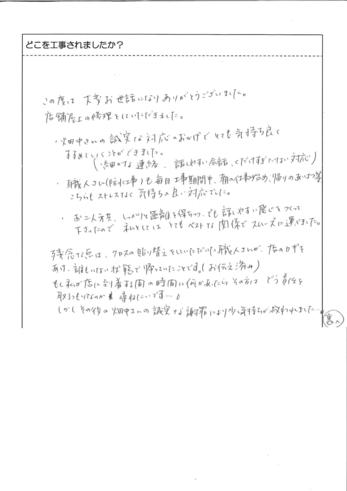 どこを工事されましたか？
この度は大変お世話になりありがとうございました。
店舗屋上の修理をしていただきました。
・畑中さんの誠実な対応のおかげでとても気持ち良く
すすめていくことができました。
(細かな連絡、話しやすい会話、くだけすぎない対応)
・職人さんも毎日工事期間中、朝の仕事始め、帰りのあいさつ等
こちらもストレスなく気持ちの良い対応でした。
・お二人共、しっかりと距離を保ちつつ、でも話しやすい感じをつくって
下さったので私としてはとてもベストな関係でスムーズに運べました。
残念な点は、クロスの貼り替えをしていただいた職人さんが、店のカギを
あけ、誰もいない状態で帰っていたことです。(お伝え済み)
もし私が店に到着する間の時間に何かあったらその方はどう責任を
取るおつもりなのか尋ねたいです…
しかしその後の畑中さんの誠実な謝罪により少し気持ちが救われました。
裏へ